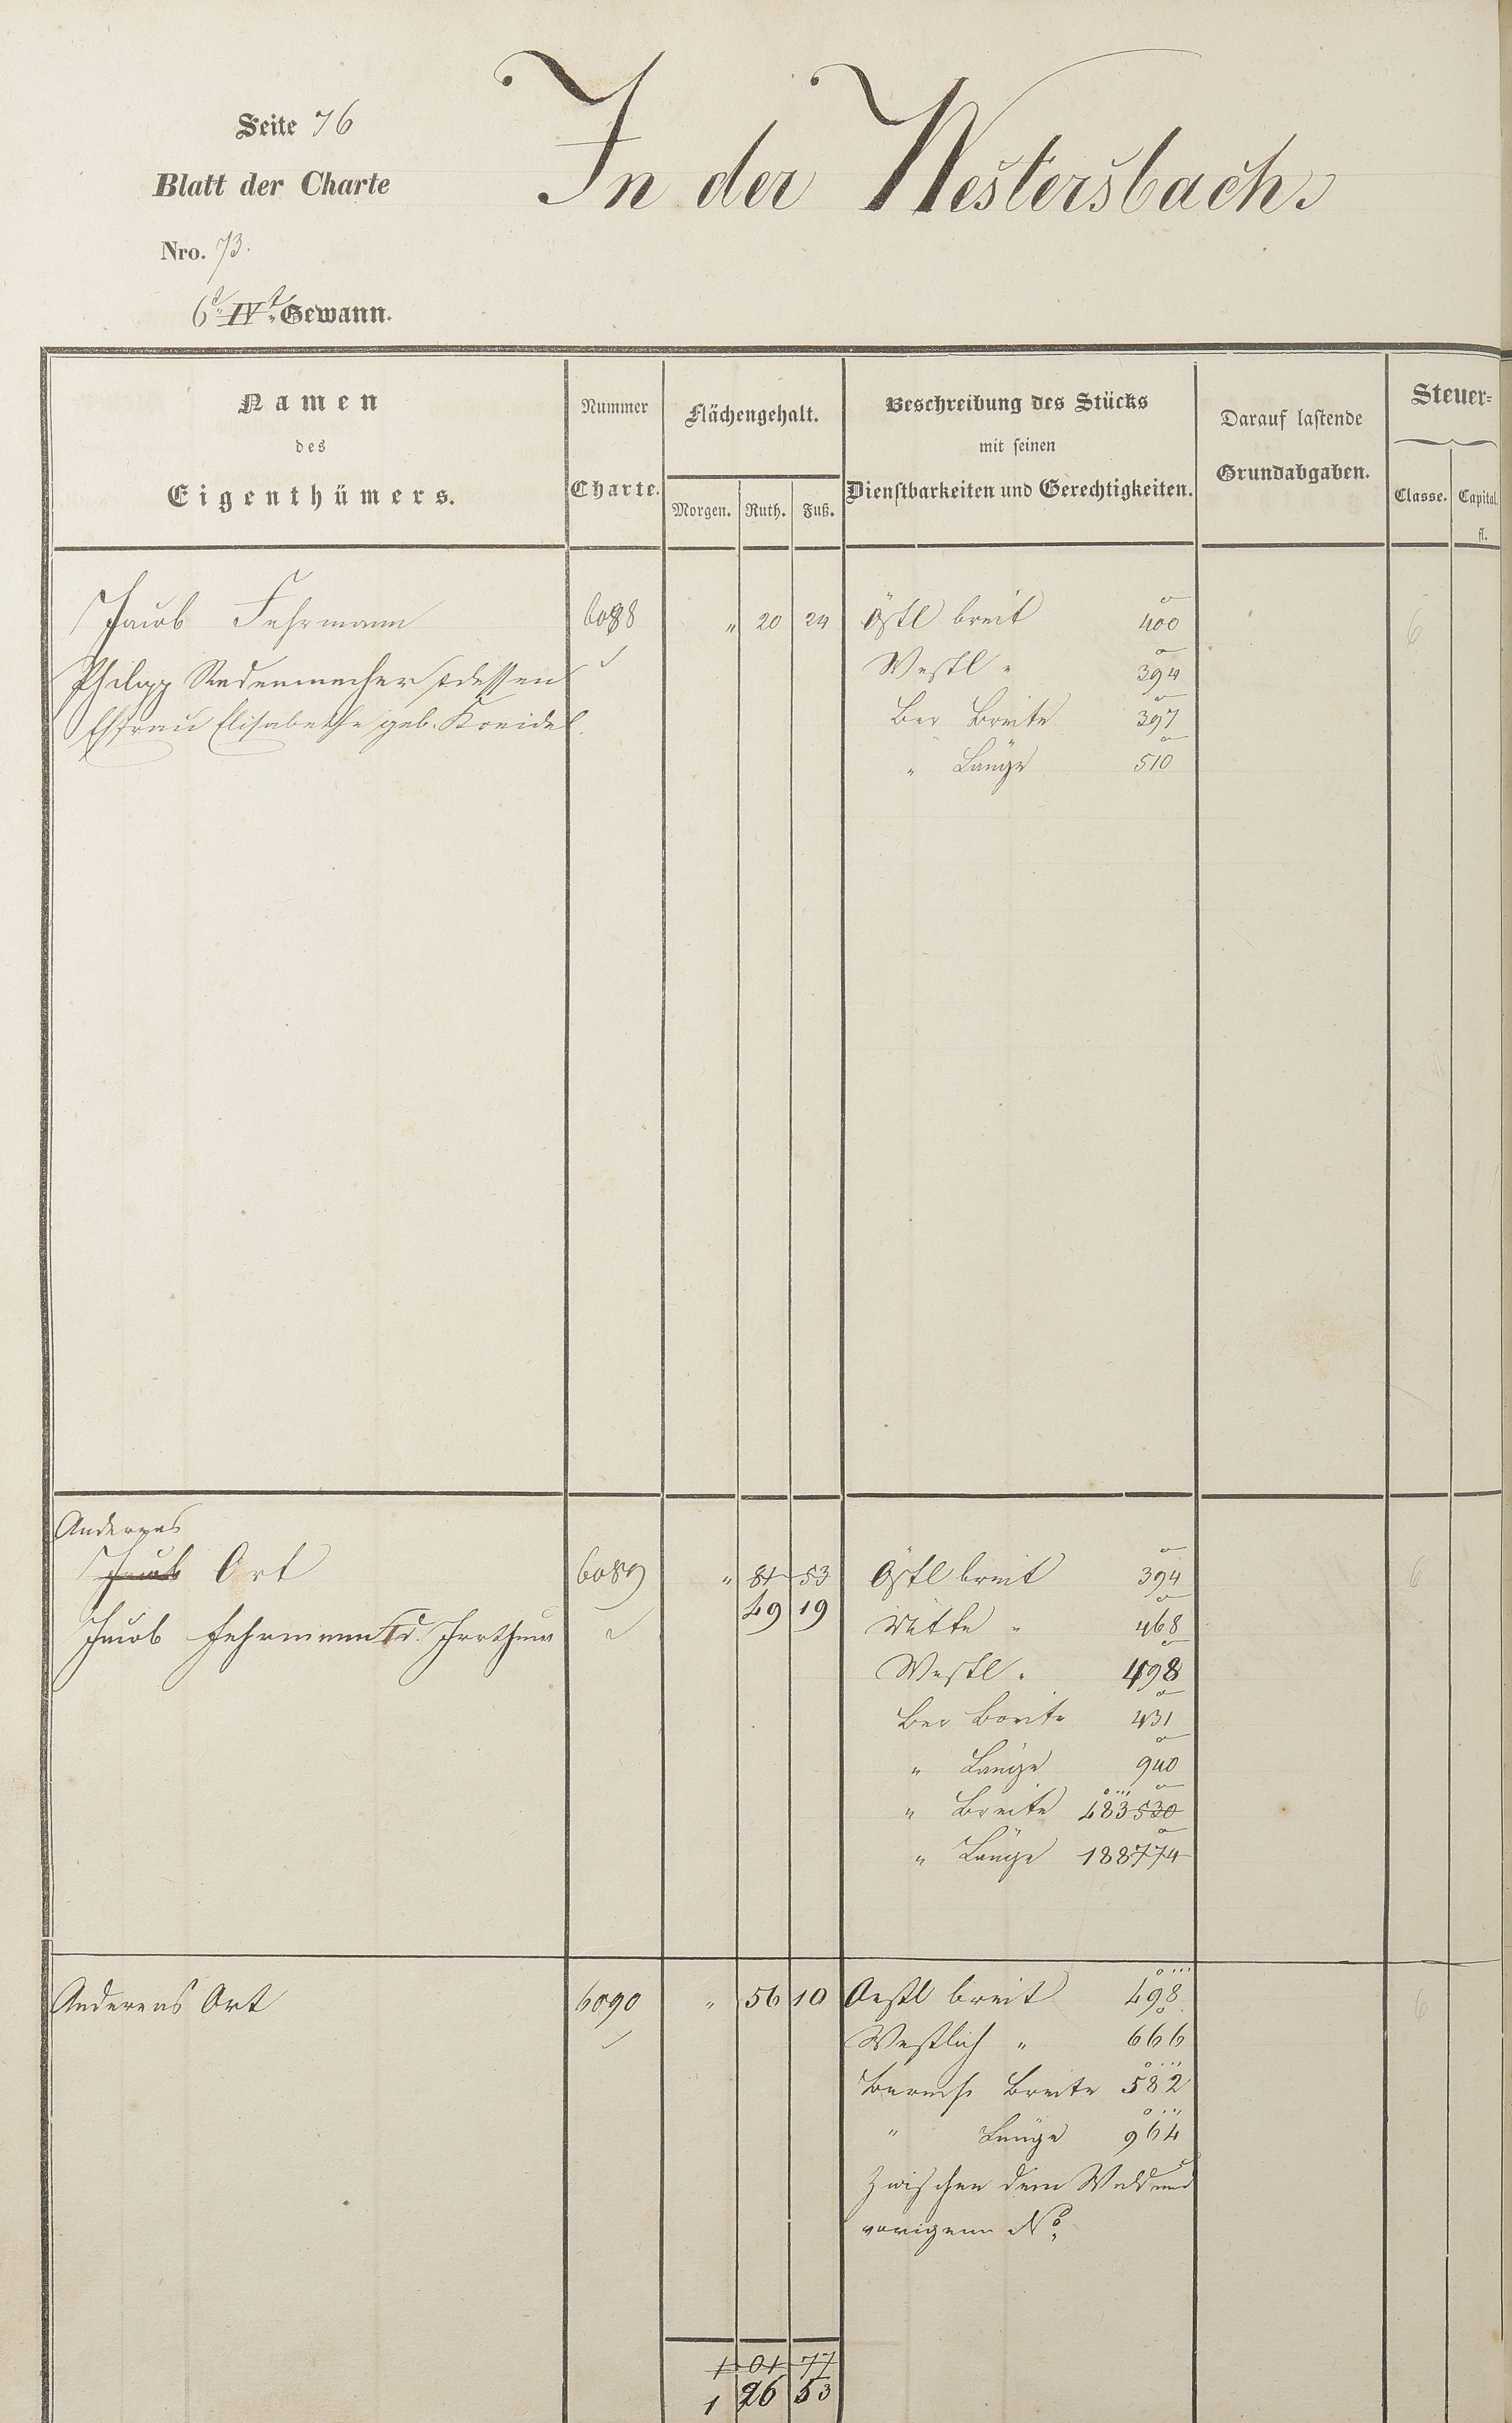 Seite 76
In der Westersbach.
Blatt der Charte
Nro. 73.
6t IVt Gewann.
Namen
des
Eigenthümers.
Nummer
Charte.
Flächengehalt.
Morgen. Ruth. Fuß.
Beschreibung des Stücks
mit seinen
Dienstbarkeiten und Gerechtigkeiten.
Darauf lastende
Grundabgaben.
Steuer=
Classe. Capital.
fl.
Jacob Fehrmann 6088 " 20 24 Östl breit 400 6
Philipp Redenmacher & dessen Westl " 394
Ehfrau Elisabethe geb. Kreidel. Ber Breite 397
" Länge 510
Anderens
Jacob Ort 6089 " 81 53 Östl breit 394 6
49 19
Jacob Fehrmann Mitte " 468
Westl " 498
Ber Breite 431
" Länge 940
" Breite 483 530
" Länge 188 774
Anderens Ort 6090 " 56 10 Oestl breit 498 6
Westlich " 666
Berech. Breite 582
" Länge 964
Zwischen dem Wald und
vorigem No.
1 01 77
1 26 53